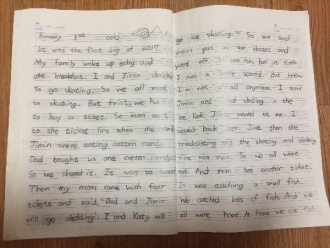 January 1st cold
It was the first day of 2017.
My family woke up early and
ate breakfast. I and Jimin decided
to go skating. So we all went
to skating. But first, we had
to buy a ticket. So mom went
to the ticket line when me and
Jimin were eating cotton candy.
Dad bought us one cotton candy
So we shared it. It was so
Then my mom came with four
tickets and said, "Dad and Jimin
will go sledding. I and Katy will
go ice skating." So me and
mom put in our shoes and
went off. It was fun. But at first
I was a little scared. But know
I'm not scared anymore. I saw
Jimin and Dad skating in the
ice rink. Jimin waved at me. I
waved back her. Just then the
broadcasting said the skating and sledding
time was over. So we all went
And mom has another ticket.
It was catching a small fish.
We catched lots of fish. And we
all went home. At home we ate fish